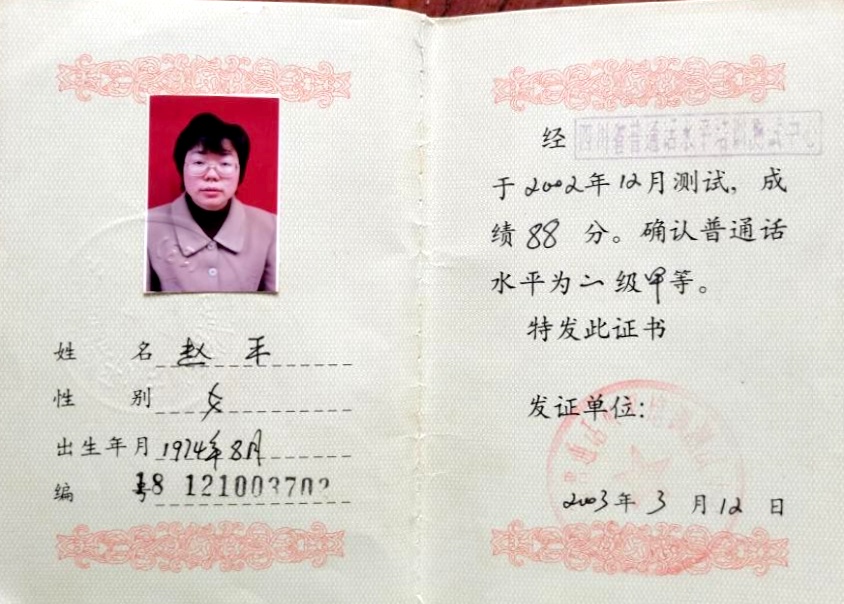 姓 名 赵 平
性 别 女
出生年月 1974年8月
编 号 18 121003702
经 四川省普通话水平培训测试中心
于2002年12月测试，成
绩 88 分。确认普通话
水平为二级甲等。
特发此证书
发证单位：
2003年 3 月 12 日